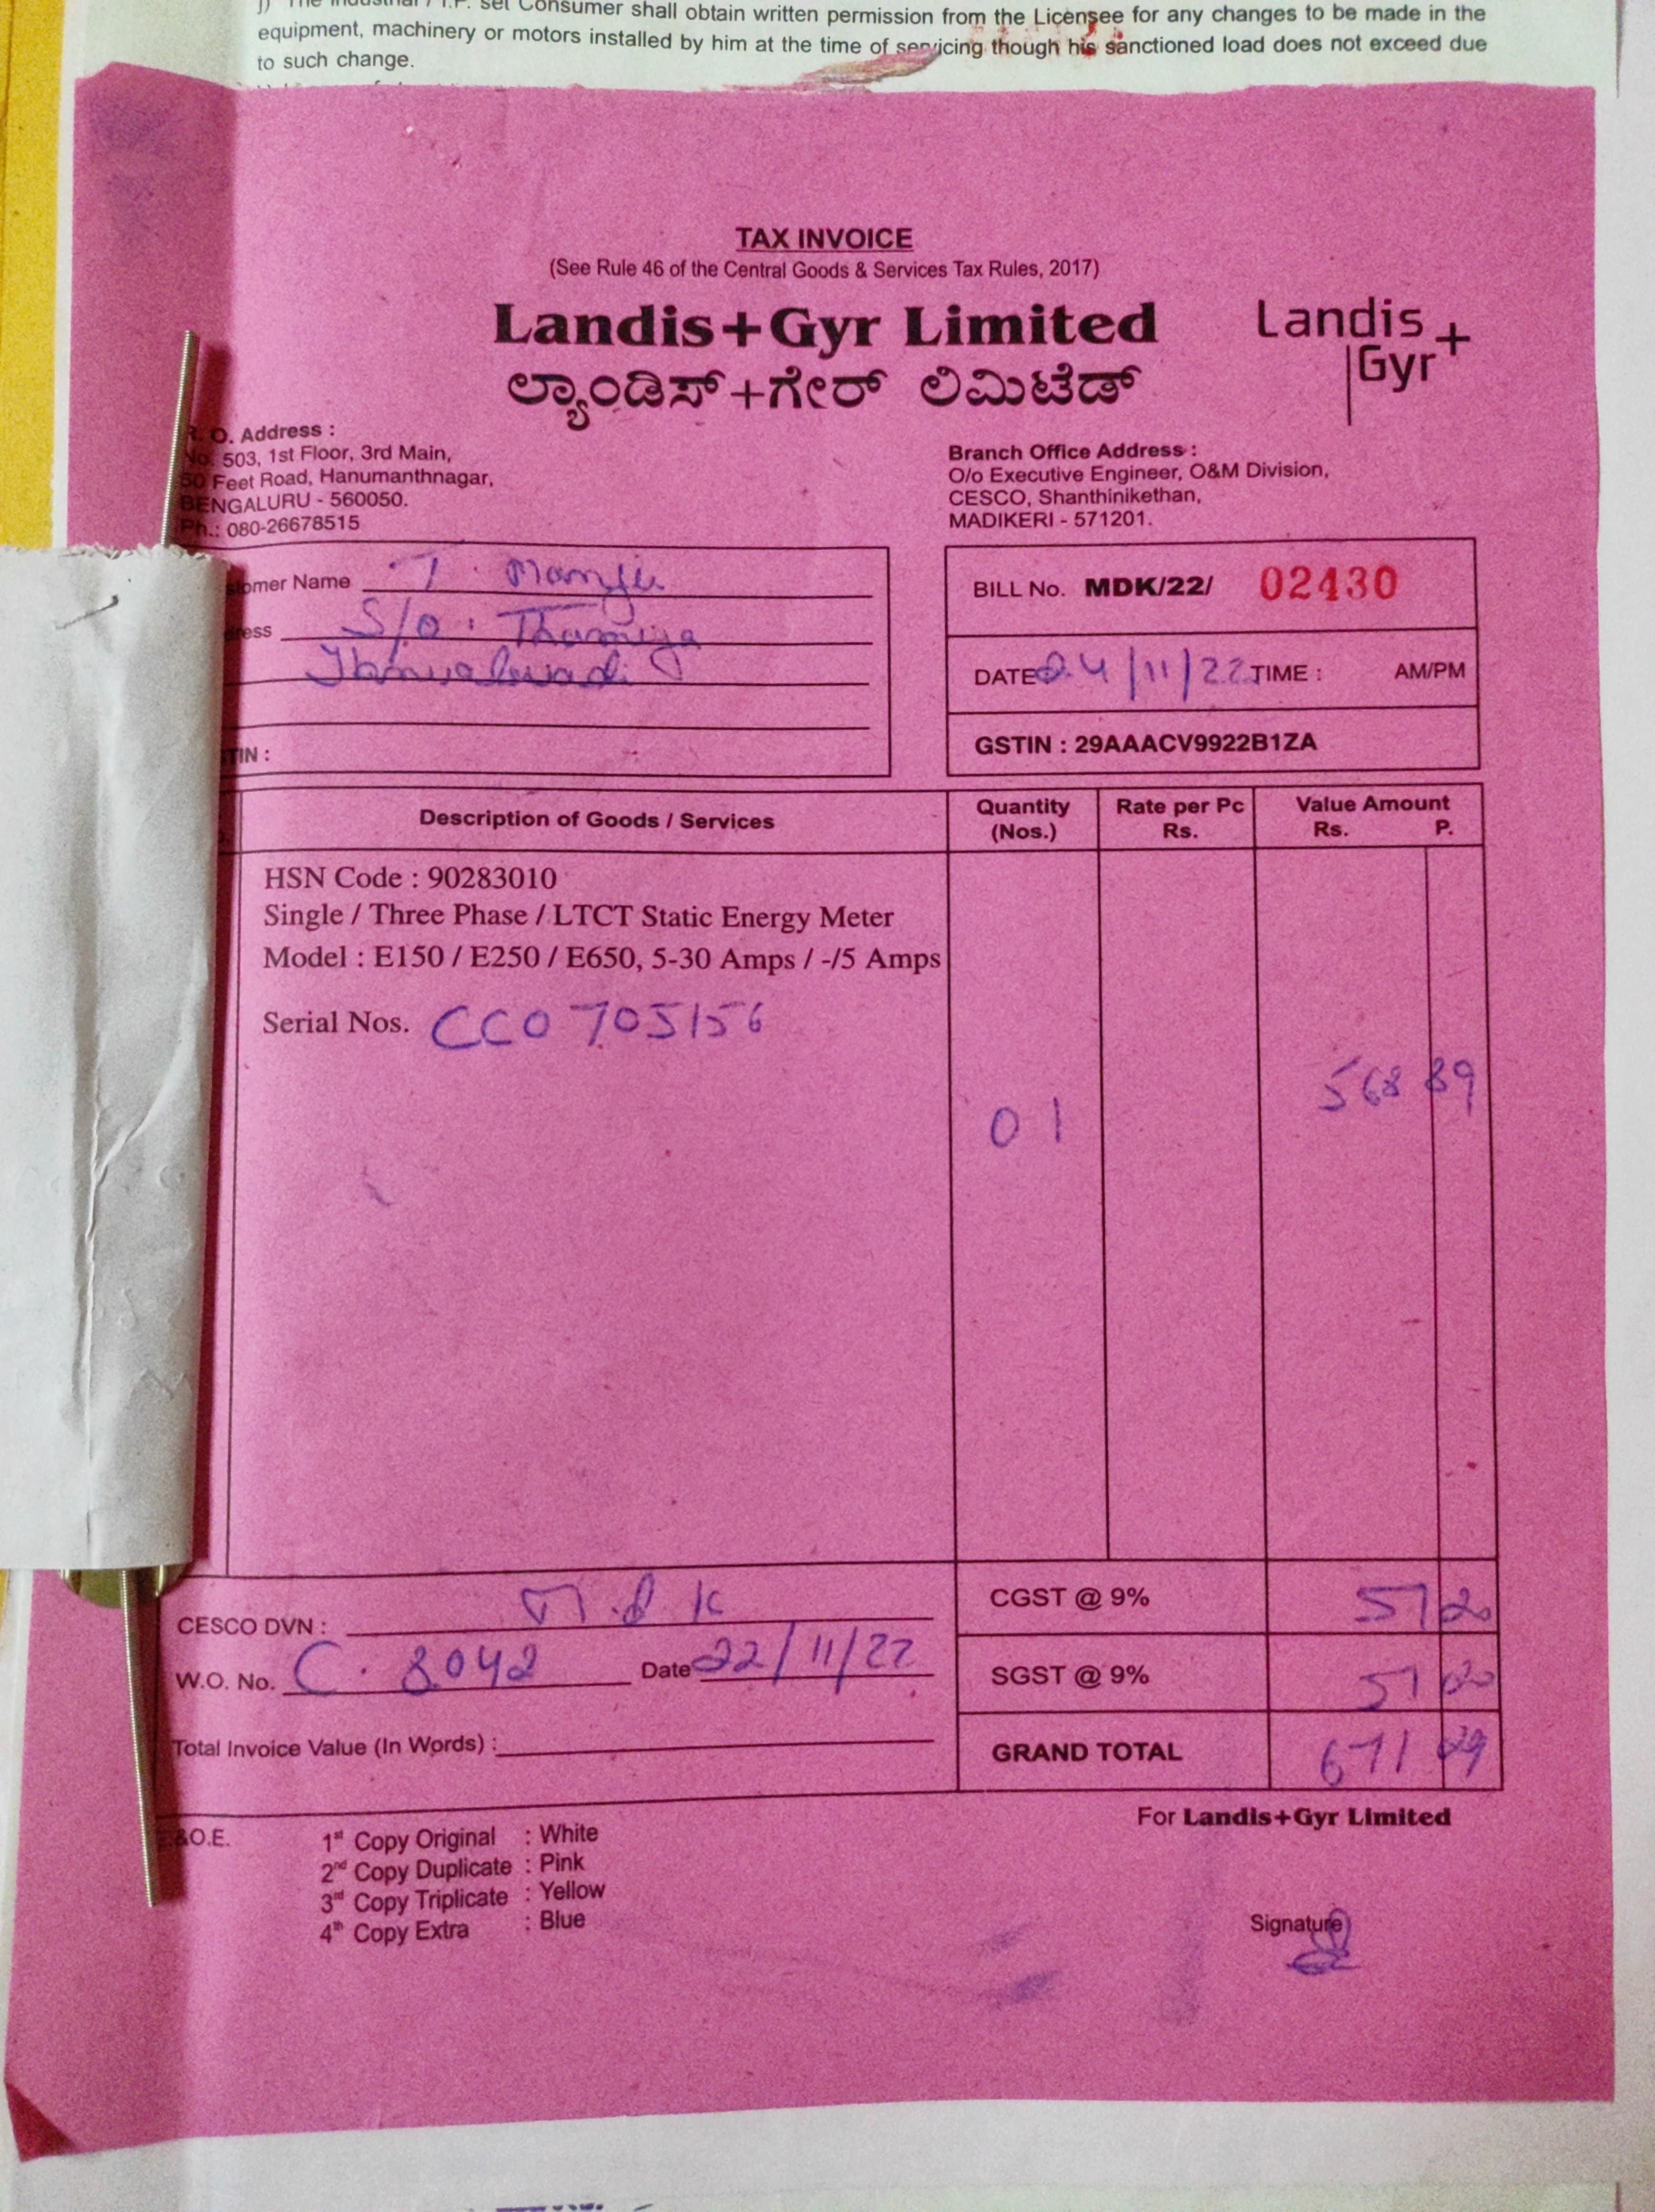 j) The Industrial / I.P. set Consumer shall obtain written permission from the Licensee for any changes to be made in the
equipment, machinery or motors installed by him at the time of servicing though his sanctioned load does not exceed due
to such change.
TAX INVOICE
(See Rule 46 of the Central Goods & Services Tax Rules, 2017)
Landis+Gyr Limited
ಲ್ಯಾಂಡಿಸ್+ಗೇರ್ ಲಿಮಿಟೆಡ್
Landis
Gyr+
O. Address :
No. 503, 1st Floor, 3rd Main,
50 Feet Road, Hanumanthnagar,
BENGALURU - 560050.
Ph.: 080-26678515
Branch Office Address :
O/o Executive Engineer, O&M Division,
CESCO, Shanthinikethan,
MADIKERI - 571201.
tomer Name T. Manju
ress S/o. Thamiya
TIN :
BILL No. MDK/22/ 02430
DATE 24/11/22 TIME : AM/PM
GSTIN : 29AAACV9922B1ZA
Description of Goods / Services Quantity (Nos.) Rate per Pc Rs. Value Amount Rs. P.
HSN Code : 90283010
Single / Three Phase / LTCT Static Energy Meter
Model : E150 / E250 / E650, 5-30 Amps / -/5 Amps
Serial Nos. CC0705156
01 568 89
CESCO DVN : M.d.K
W.O. No. C. 8042 Date 22/11/22
Total Invoice Value (In Words) :
CGST @ 9% 51 20
SGST @ 9% 51 20
GRAND TOTAL 671 29
&O.E.
1st Copy Original : White
2nd Copy Duplicate : Pink
3rd Copy Triplicate : Yellow
4th Copy Extra : Blue
For Landis+Gyr Limited
Signature